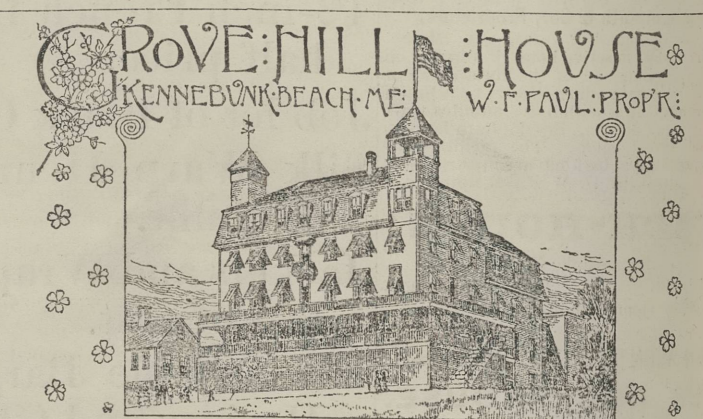 GROVE HILL HOVSE
KENNEBVNK·BEACH·ME· W·F·PAVL:PROP'R: